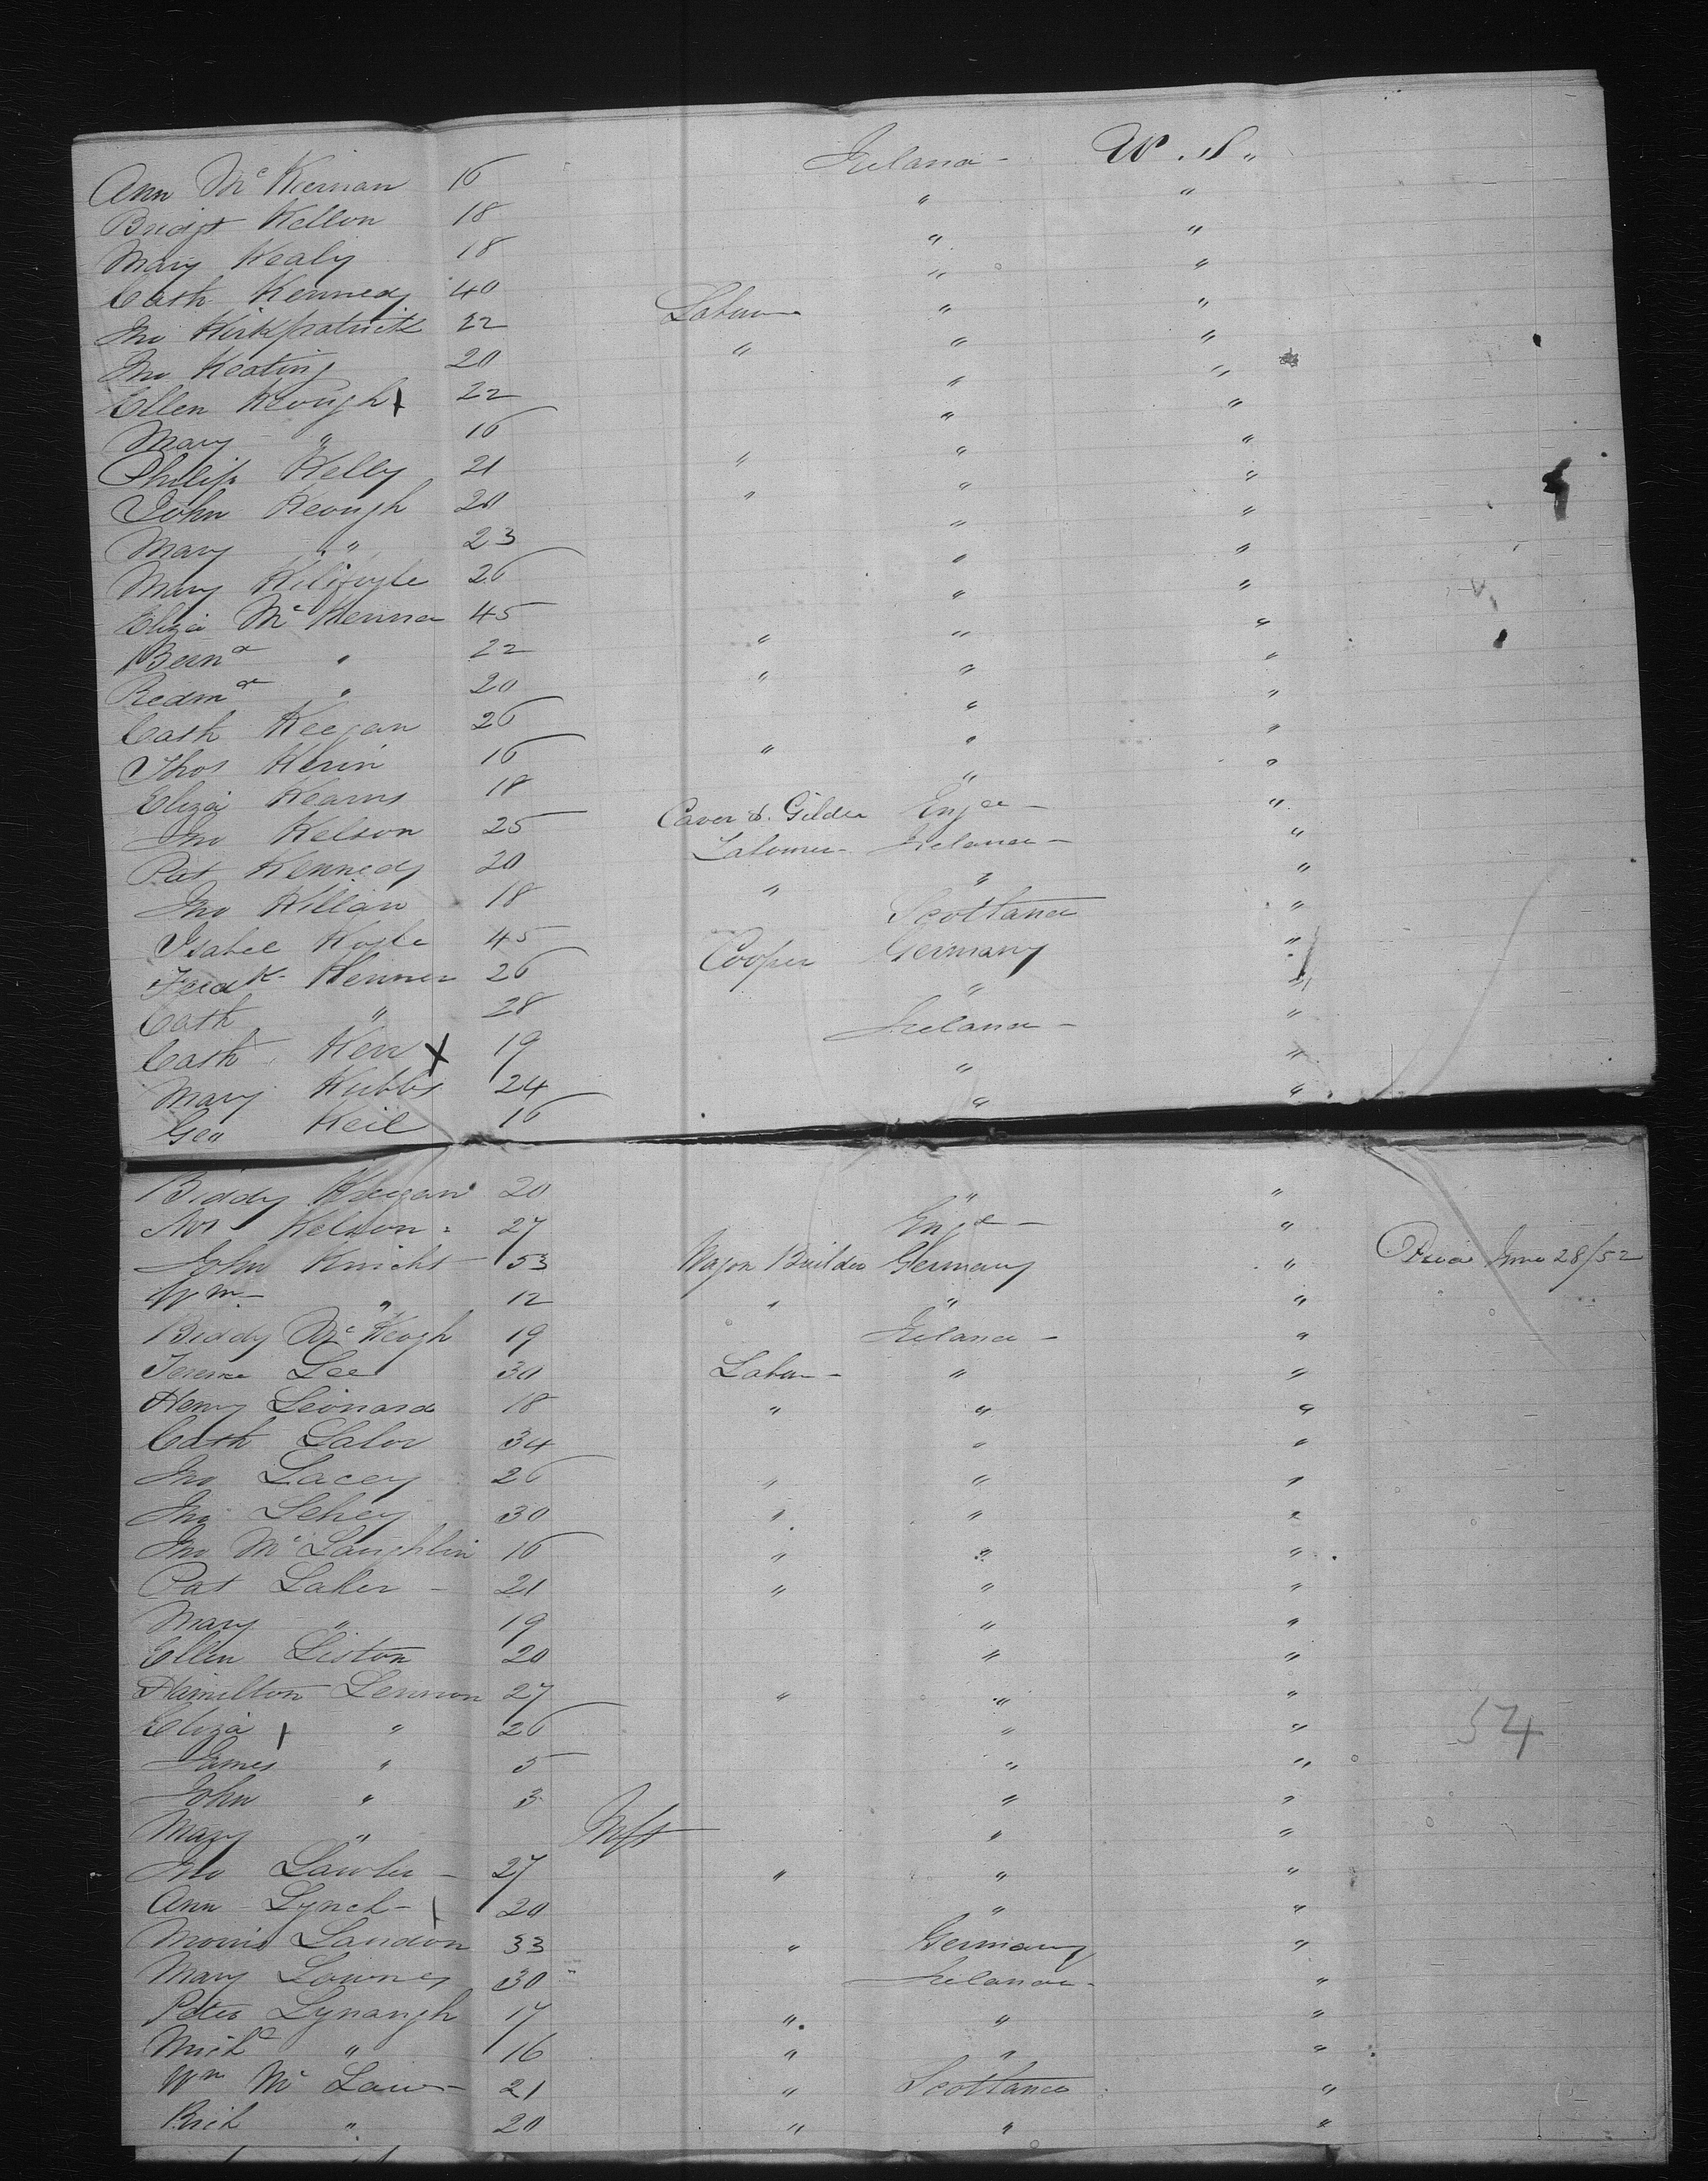 Ann McKiernan 16 Ireland - U.S.
Bridgt Kellon 18 " "
Mary Kealy 18 " "
Cath Kennedy 40 " "
Jno Kirkpatrick 22 Labour " "
Jno Keating 20 " " "
Ellen Keough x 22 " "
Mary " 16 " "
Philip Kelly 21 " " "
John Keough 20 " " "
Mary " 23 " "
Mary 26 " "
Eliza McKenna 45 " "
Bernd " 22 " " "
Redmd " 20 " " "
Cath Keegan 26 " "
Thos Kerin 16 " " "
Eliza Kearns 18 " "
Jno Kelson 25 Caver & Gilder Engd - "
Pat Kennedy 20 Labourer - Ireland - "
Jno Killan 18 " " "
Isabel 45 Scotland "
Fredk Kenner 26 Cooper Germany "
Cath " 28 " "
Cath Kerr x 19 Ireland - "
Mary Kubbs 24 " "
Geo Keil 16 " "
Biddy Keegan 20 " "
Kelson 27 Engd - "
John Knicht 53 Wagon Builder Germany " Died June 28/52
Wm " 12 " " "
Biddy McKeogh 19 Ireland - "
Terence Lee 30 Labour - " "
Henry Leonard 18 " " "
Cath Lalor 34 " "
Jno Lacey 26 " " "
Jno Lehey 30 " " "
Jno McLaughlin 16 " " "
Pat Laher - 21 " " "
Mary " 19 " "
Ellen Liston 20 " "
Hamilton Lennon 27 " " "
Eliza x " 26 " " 54
James " 5 " "
John " 3 " "
Mary " Inft " "
Jno Lawler - 27 " " "
Ann Lynch - x 20 " "
Morris Landon 33 " Germany "
Mary Lowney 30 Ireland - "
Peter Lynaugh 17 " " "
Michl " 16 " " "
Wm McLaws 21 " Scotland "
Rich " 20 " " "